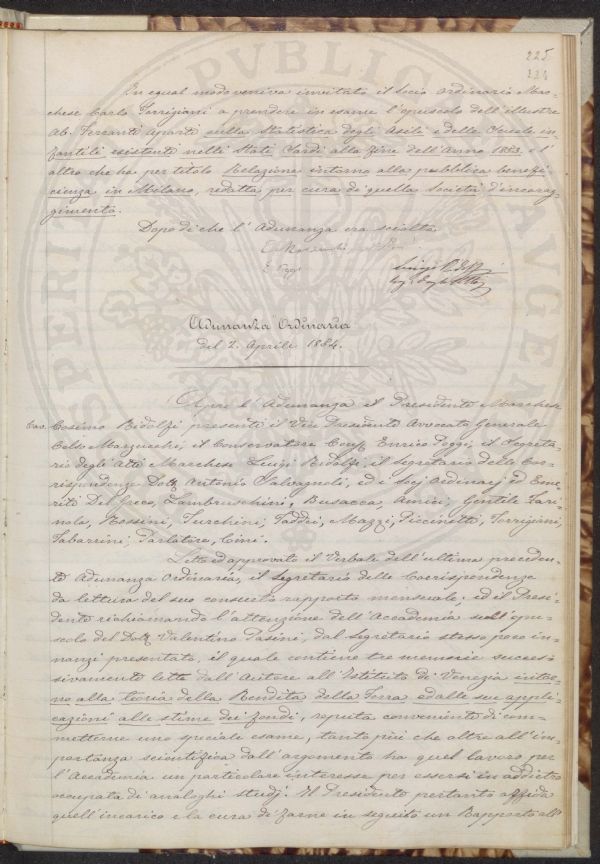 225
224
In egual modo veniva invitato il Socio Ordinario Mar=
chese Carlo Torrigiani a prendere in esame l'opuscolo dell'illustre
Ab. Ferrante Aporti sulla Statistica degli Asili e delle Scuole in=
fantili esistenti nelli Stati Sardi alla fine dell'Anno 1853 e l'
altro che ha per titolo Relazione intorno alla pubblica benefi=
cienza in Milano, redatta per cura di quella Società d'incorag=
gimento.
Dopo di che l'Adunanza era sciolta.
E. Poggi
Adunanza Ordinaria
del 2. Aprile 1854.
Aprì l'Adunanza il Presidente Marchese
Cav. Cosimo Ridolfi presenti il Vice Presidente Avvocato Generale
Celso Marzucchi, il Conservatore Conss. Enrico Poggi, il Segreta=
rio degli Atti Marchese Luigi Ridolfi, il Segretario delle Cor=
rispondenze Dott. Antonio Salvagnoli, ed i Socj Ordinarj ed Eme=
riti Del Greco, Lambruschini, Busacca, Amici, Gentile Fari=
nola, Rossini, Turchini, Taddei, Mazzi, Piccinetti, Torrigiani,
Tabarrini, Parlatore, Cini.
Letto ed approvato il Verbale dell'ultima preceden=
te Adunanza Ordinaria, il Segretario delle Corrispondenze
dà lettura del suo consueto rapporto mensuale; ed il Presi=
dente richiamando l'attenzione dell'Accademia sull'opu=
scolo del Dott. Valentino Pasini, dal segretario stesso poco in=
nanzi presentato, il quale contiene tre memorie succes=
sivamente lette dall'Autore all'Istituto di Venezia intor=
no alla teoria della Rendita della Terra e dalle sue appli=
cazioni alle stime dei fondi, reputa conveniente di com=
metterne uno speciale esame, tanto più che oltre all'im=
portanza scientifica dall'argomento ha quel lavoro per
l'Accademia un particolare interesse per essersi in addietro
occupata di analoghi studj. Il Presidente pertanto affida
quell'incarico e la cura di farne in seguito un Rapporto all'
SPERITAS PUBLICA AUGE